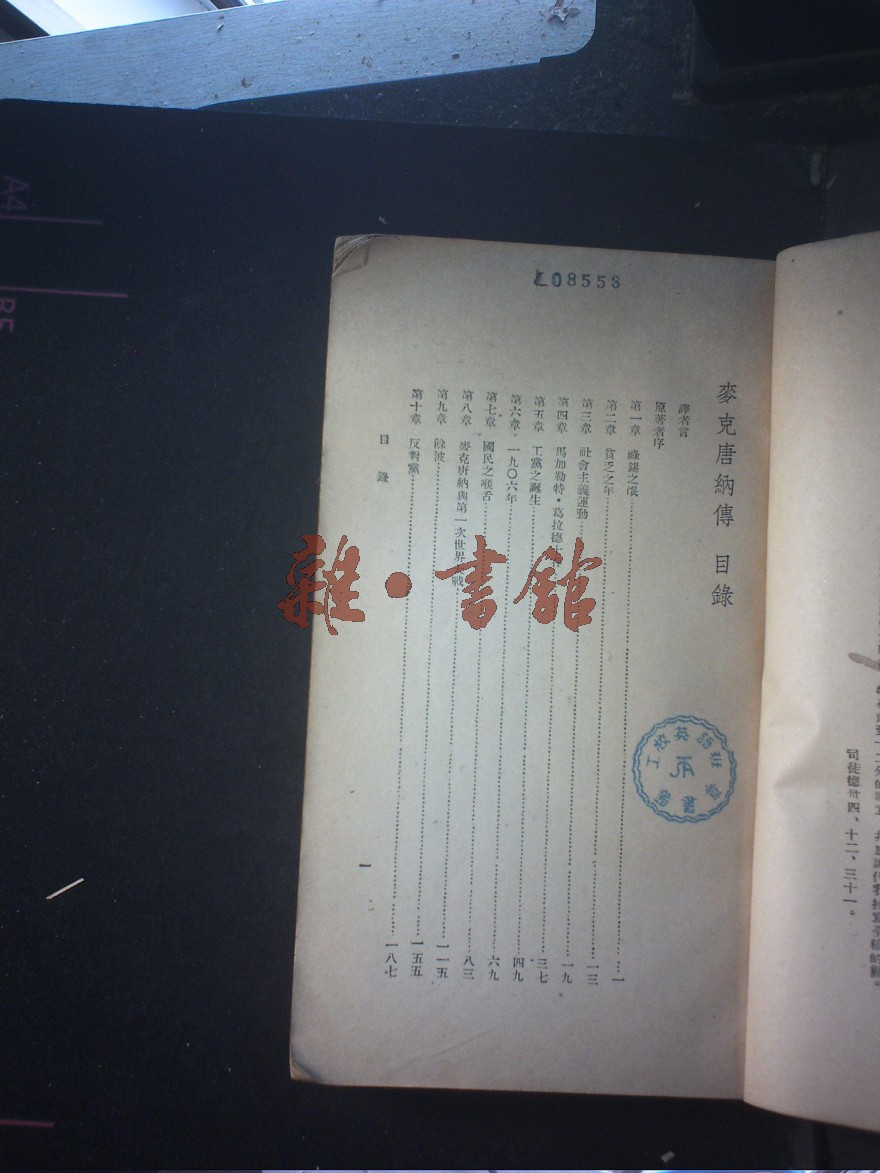 L08553
麥克唐納傳 目錄
譯者言
原著者序
第一章 綠錫之俄 一
第二章 貧乏之年 一三
第三章 社會主義運動 一九
第四章 馬加勒特·葛拉德 三七
第五章 工黨之誕生 四九
第六章 一九〇六年 六九
第七章 國民之喉舌 八三
第八章 麥克唐納與第一次世界 戰 一一五
第九章 餘波 一五五
第十章 反對黨 一八七
目錄
一
工校英語班
圖書
雜·書館
司徒德卅四、十二、三十一。
A4
B5